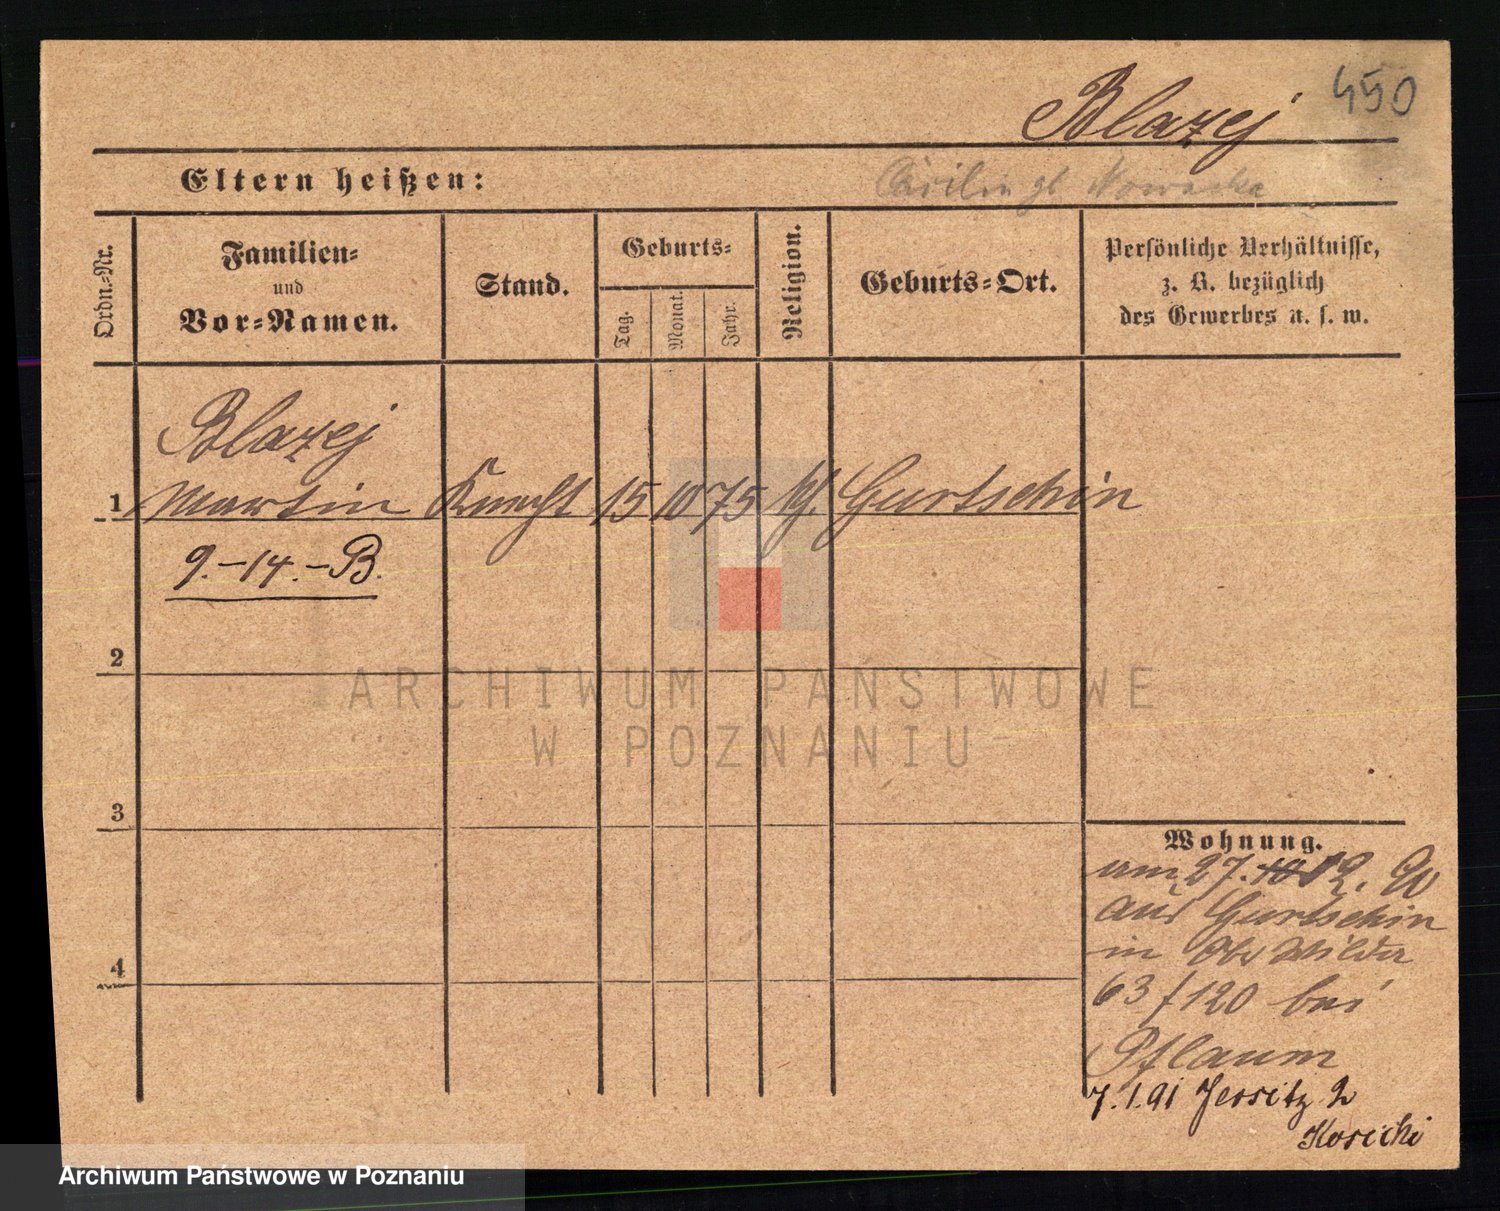 450
Blazej
Eltern heißen:
Cäcilie gb Nowacka
Ordn.-Nr.
Familien-
und
Vor-Namen.
Stand.
Geburts-
Tag.
Monat.
Jahr.
Religion.
Geburts-Ort.
Persönliche Verhältnisse,
z. B. bezüglich
des Gewerbes u. s. w.
Blazej
1 Martin Knecht 15 10 75 kf. Gurtschin
9.-14.-B.
2
3
4
Wohnung.
am 27. 10 12. 90
aus Gurtschin
in Ober Wilda
63/120 bei
Pflaum
7.1.91 Jersitz 2
Kosicki
ARCHIWUM PAŃSTWOWE
W POZNANIU
Archiwum Państwowe w Poznaniu